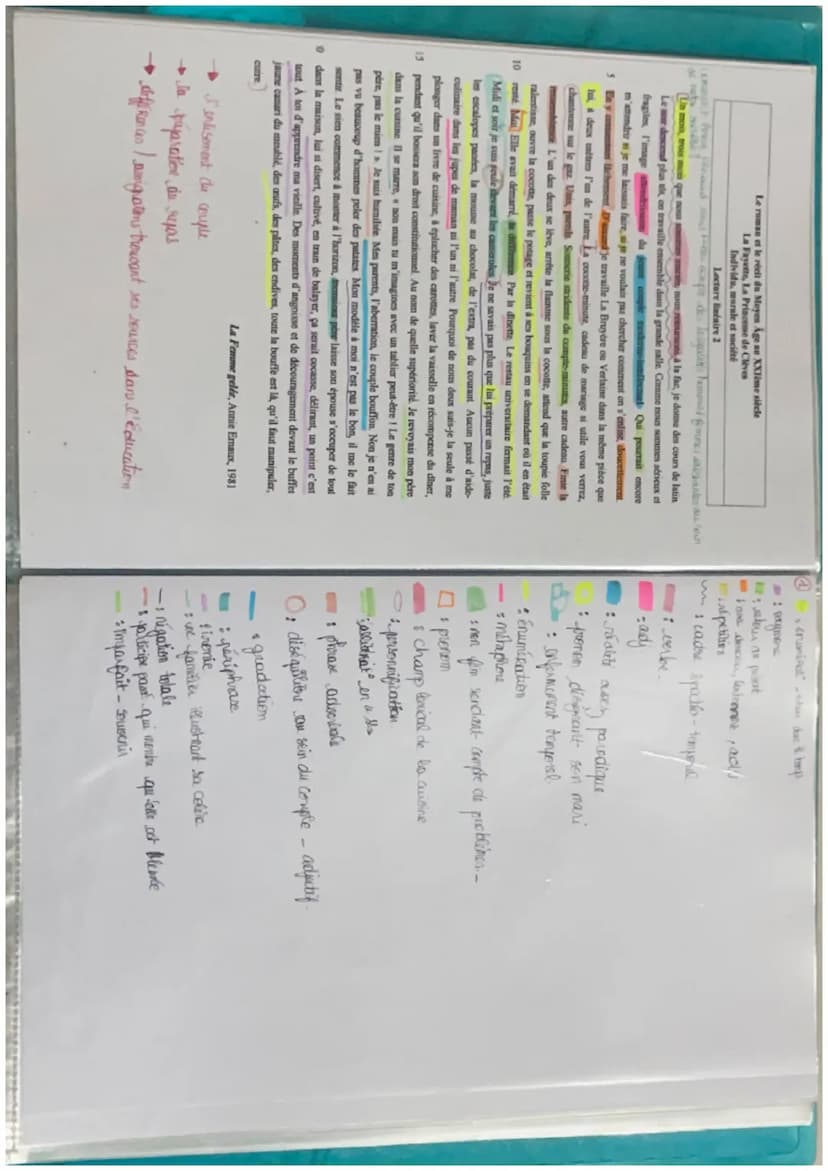 Le roman et le récit du Moyen Âge au XXIème siècle
La Fayette, La Princesse de Clèves
Individu, morale et société
Lecture linéaire 2
Un mois, trois mois que nous sommes mariés, nous retournons à la fac, je donne des cours de latin.
Le soir descend plus tôt, on travaille ensemble dans la grande salle. Comme nous sommes sérieux et
fragiles, l'image attendrissante du jeune couple moderno-intellectuel. Qui pourrait encore
m'attendrir si je me laissais faire, si je ne voulais pas chercher comment on s'enlise, doucettement.
5 En y consentant lâchement. D'accord je travaille La Bruyère ou Verlaine dans la même pièce que
lui, à deux mètres l'un de l'autre. La cocotte-minute, cadeau de mariage si utile vous verrez,
chantonne sur le gaz. Unis, pareils. Sonnerie stridente du compte-minutes, autre cadeau. Finie la
ressemblance. L'un des deux se lève, arrête la flamme sous la cocotte, attend que la toupie folle
ralentisse, ouvre la cocotte, passe le potage et revient à ses bouquins en se demandant où il en était
10 resté. Moi. Elle avait démarré, la différence. Par la dînette. Le restau universitaire fermait l'été.
Midi et soir je suis seule devant les casseroles. Je ne savais pas plus que lui préparer un repas, juste
les escalopes panées, la mousse au chocolat, de l'extra, pas du courant. Aucun passé d'aide-
culinaire dans les jupes de maman ni l'un ni l'autre. Pourquoi de nous deux suis-je la seule à me
plonger dans un livre de cuisine, à éplucher des carottes, laver la vaisselle en récompense du dîner,
15 pendant qu'il bossera son droit constitutionnel. Au nom de quelle supériorité. Je revoyais mon père
dans la cuisine. Il se marre, « non mais tu m'imagines avec un tablier peut-être ! Le genre de ton
père, pas le mien ! ». Je suis humiliée. Mes parents, l'aberration, le couple bouffon. Non je n'en ai
pas vu beaucoup d'hommes peler des patates. Mon modèle à moi n'est pas le bon, il me le fait
sentir. Le sien commence à monter à l'horizon, monsieur père laisse son épouse s'occuper de tout
0 dans la maison, lui si disert, cultivé, en train de balayer, ça serait cocasse, délirant, un point c'est
tout. À toi d'apprendre ma vieille. Des moments d'angoisse et de découragement devant le buffet
jaune canari du meublé, des œufs, des pâtes, des endives, toute la bouffe est là, qu'il faut manipuler,
cuire.
La Femme gelée, Annie Ernaux, 1981
→ S enlisement du couple
→ la préparation du repas
→ différences / inégalités trouvant ses sources dans l'éducation
: répétition
: cadre spatio-temporel
: verbe
: adj
: modalité assez parodique
: pronom désignant son mari
: complément temporel
: énumération
: métaphore
: pronom
: champ lexical de la cuisine
: personnification
: phrase adverbiale
: déséquilibre au sein du couple - adjectif
: gradation
: périphrase
: ironie
: voc familier illustrant sa colère
: négation totale
: participe passé qui montre qu'elle est blessée
: imparfait - souvenir